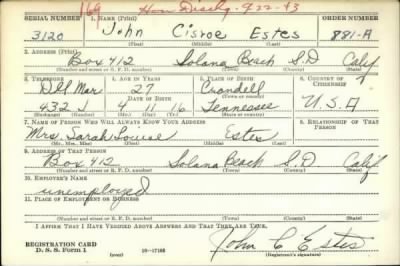 169 Hon Dischg. 9-22-43
SERIAL NUMBER 1. NAME (Print) ORDER NUMBER
3120 John Cisroe Estes 881-A
(First) (Middle) (Last)
2. ADDRESS (Print)
Box 412 Solana Beach S.D Calif
(Number and street or R. F. D. number) (Town) (County) (State)
3. TELEPHONE 4. AGE IN YEARS 5. PLACE OF BIRTH 6. COUNTRY OF CITIZENSHIP
Del Mar 27 Crandell
DATE OF BIRTH (Town or county)
432 J 4 11 16 Tennessee U.S.A
(Exchange) (Number) (Mo.) (Day) (Yr.) (State or country)
7. NAME OF PERSON WHO WILL ALWAYS KNOW YOUR ADDRESS 8. RELATIONSHIP OF THAT PERSON
Mrs. Sarah Louise Estes
(Mr., Mrs., Miss) (First) (Middle) (Last)
9. ADDRESS OF THAT PERSON
Box 412 Solana Beach S.D Calif
(Number and street or R. F. D. number) (Town) (County) (State)
10. EMPLOYER'S NAME
unemployed
11. PLACE OF EMPLOYMENT OR BUSINESS
(Number and street or R. F. D. number) (Town) (County) (State)
I AFFIRM THAT I HAVE VERIFIED ABOVE ANSWERS AND THAT THEY ARE TRUE.
REGISTRATION CARD John C Estes
D. S. S. Form 1 16-17105 (Registrant's signature)
(over)